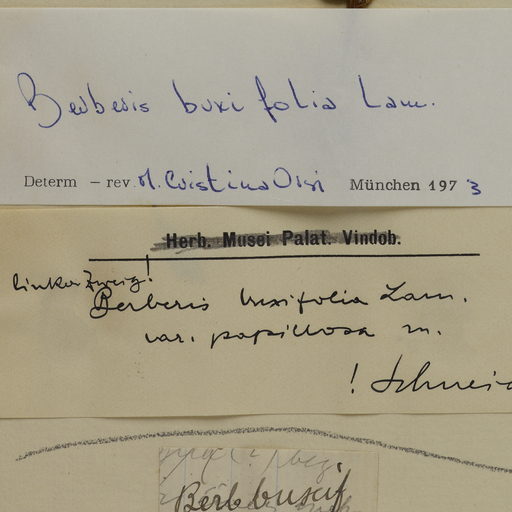 Berberis buxifolia Lam.
Determ – rev. M. Cristina Orsi München 1973
Herb. Musei Palat. Vindob.
linker Zweig!
Berberis buxifolia Lam.
var. papillosa m.
! Schneid
Berb buxif